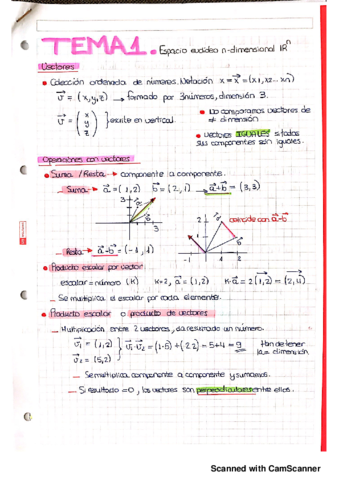 TEMA 1. Espacio euclideo n-dimensional ℝⁿ
Vectores
• Colección ordenada de números. Notación x = x⃗ = (x1, x2... xn)
v⃗ = (x, y, z) → formado por 3 números, dimensión 3.
v⃗ = (x y z) } escrito en vertical.
• No comparamos vectores de ≠ dimensión
• Vectores IGUALES si todas sus componentes son iguales.
Operaciones con vectores
• Suma / Resta → componente a componente.
— Suma → a⃗ = (1, 2) b⃗ = (2, 1) → a⃗+b⃗ = (3, 3)
3
3
2
1
-1
2
4
coincide con a⃗-b⃗
— Resta → a⃗-b⃗ = (-1, 1)
• Producto escalar por vector
escalar = número (K) K=2, a⃗ = (1, 2) K·a⃗ = 2(1, 2) = (2, 4)
— Se multiplica el escalar por cada elemento.
• Producto escalar o producto de vectores
— Multiplicación entre 2 vectores, da resultado un número.
v⃗1 = (1, 2)
v⃗2 = (5, 2)
} v⃗1·v⃗2 = (1·5) + (2·2) = 5+4 = 9
Han de tener la = dimensión.
— Se multiplica componente a componente y sumamos.
— Si resultado = 0, los vectores son perpendiculares entre ellos.
Scanned with CamScanner